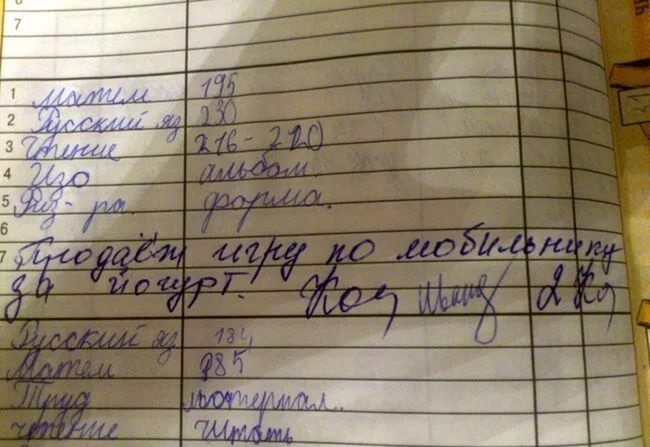 7
1 Матем 195
2 Русский яз 230
3 Чтение 216-220
4 Изо альбом.
5 Физ-ра. форма.
6
7 Продаёт игру по мобильнику
за йогурт. 2
Русский яз 184
Матем 185
Труд материал..
чтение читать